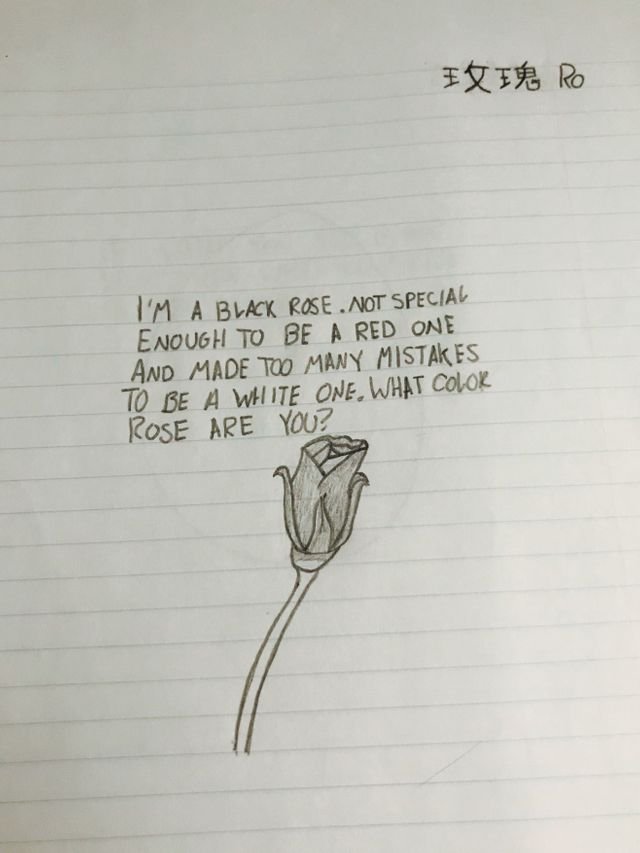 玫瑰 Ro
I'M A BLACK ROSE. NOT SPECIAL
ENOUGH TO BE A RED ONE
AND MADE TOO MANY MISTAKES
TO BE A WHITE ONE. WHAT COLOR
ROSE ARE YOU?